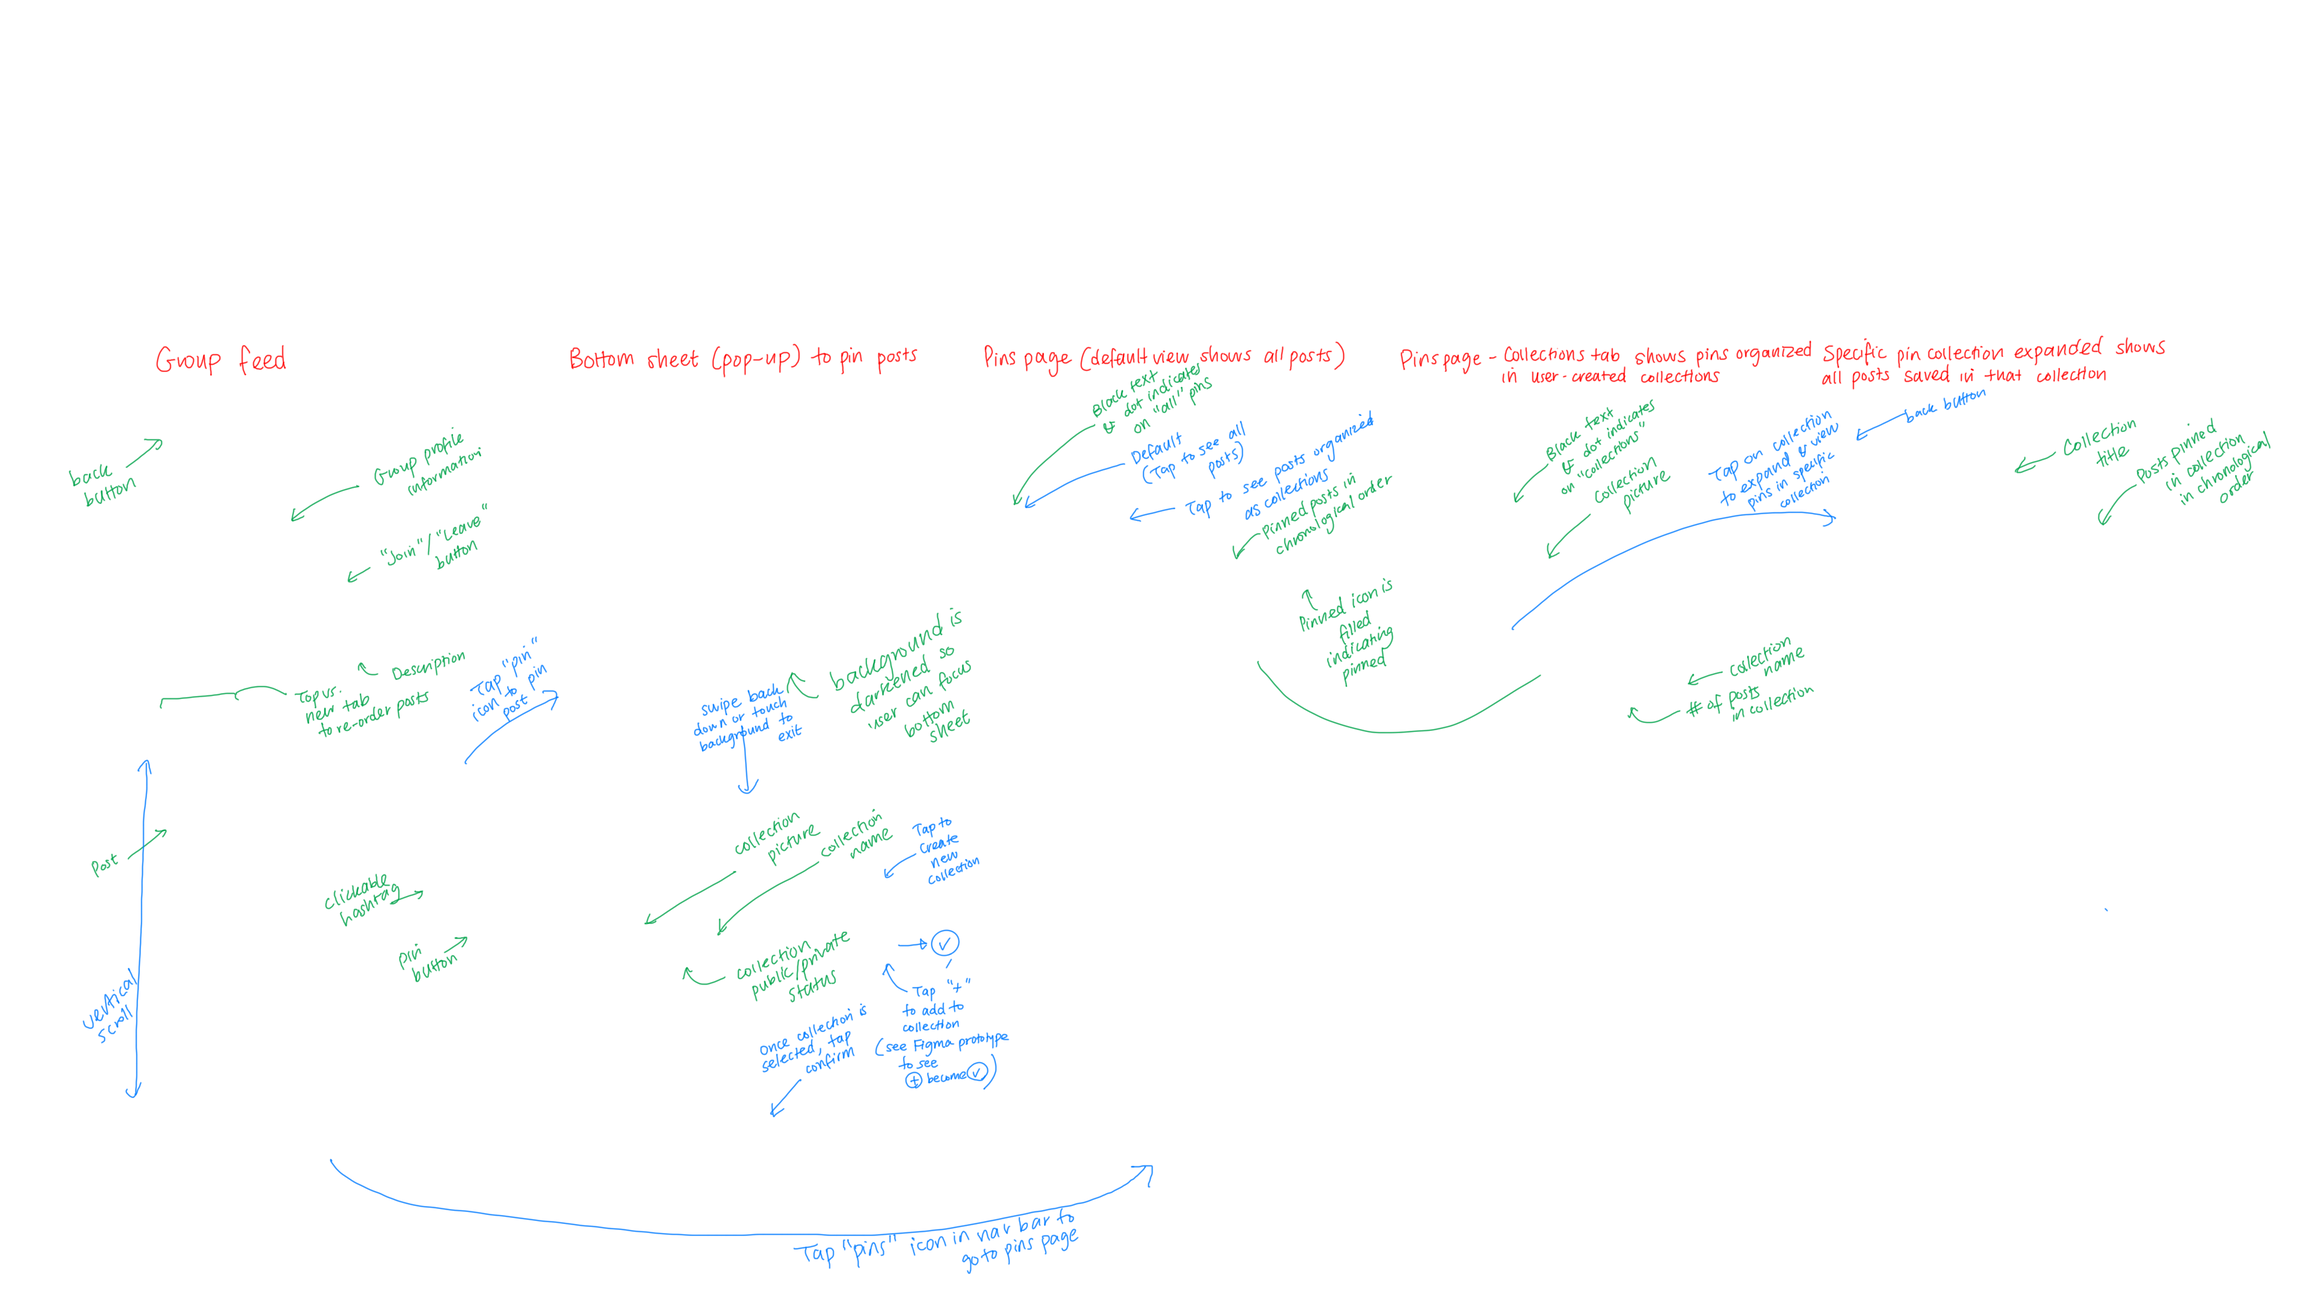 Group feed
back
button
Group profile
information
"Join"/"Leave"
button
Description
Top vs.
new tab
to re-order posts
Tap "pin"
icon to pin
post
Post
vertical
scroll
clickable
hashtag
pin
button
Bottom sheet (pop-up) to pin posts
swipe back
down or touch
background to
exit
background is
darkened so
user can focus
bottom
sheet
collection
picture
collection
name
Tap to
create
new
collection
collection
public/private
status
Tap "+"
to add to
collection
(see Figma prototype
to see
+ become ✓)
once collection is
selected, tap
confirm
Tap "pins" icon in nav bar to
go to pins page
Pins page (default view shows all posts)
Black text
& dot indicates
on "all" pins
Default
(Tap to see all
posts)
Tap to see posts organized
as collections
Pinned posts in
chronological order
Pinned icon is
filled
indicating
pinned
Pins page - Collections tab shows pins organized
in user-created collections
Black text
& dot indicates
on "collections"
Collection
picture
Tap on collection
to expand & view
pins in specific
collection
collection
name
# of posts
in collection
Specific pin collection expanded shows
all posts saved in that collection
back button
Collection
title
Posts pinned
in collection
in chronological
order